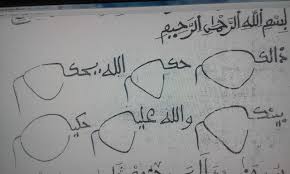 بسم الله الرحمن الرحيم
ذالكم حكم الله يحكم
بينكم والله عليم حكيم